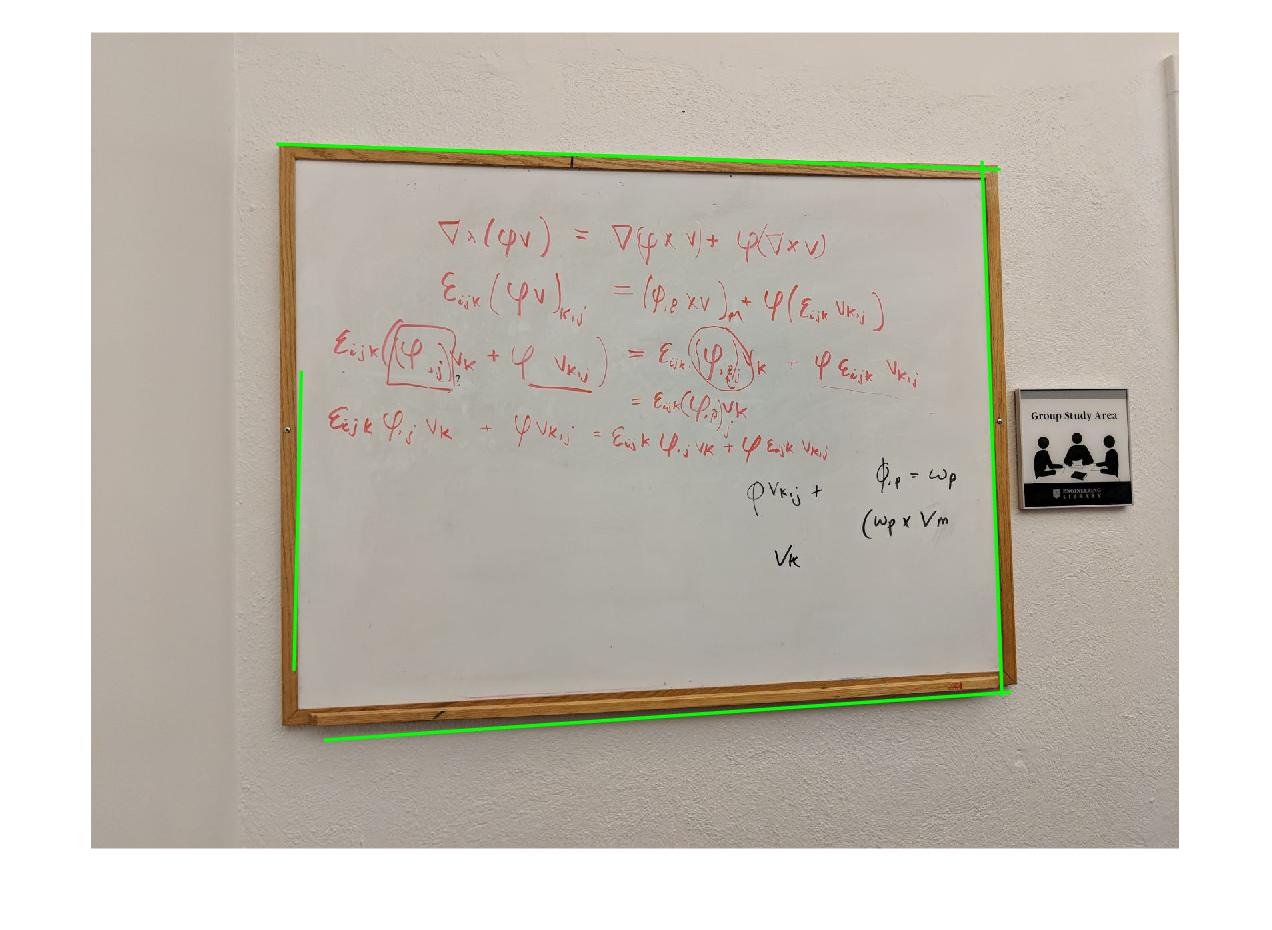 ∇x(φv) = ∇(φ x v) + φ(∇ x v)
εijk(φv)k,j = (φ,p xv),m + φ(εijk vk,j)
εijk((φ,j)vk + φ vk,j) = εijk(φ,p)j vk + φ εijk vk,j
?
= εijk(φ,p)j vk
εijk φ,j vk + φvk,j = εijk φ,j vk + φ εijk vk,j
φvk,j +
ϕ,p = ωp
(ωp x Vm
Vk
Group Study Area
ENGINEERING
LIBRARY